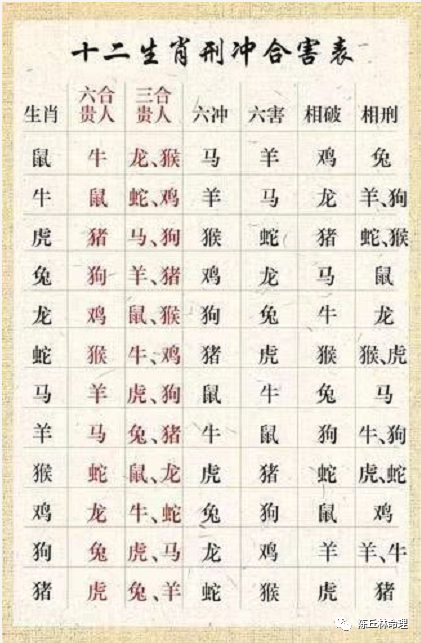 十二生肖刑冲合害表
生肖 六合贵人 三合贵人 六冲 六害 相破 相刑
鼠 牛 龙、猴 马 羊 鸡 兔
牛 鼠 蛇、鸡 羊 马 龙 羊、狗
虎 猪 马、狗 猴 蛇 猪 蛇、猴
兔 狗 羊、猪 鸡 龙 马 鼠
龙 鸡 鼠、猴 狗 兔 牛 龙
蛇 猴 牛、鸡 猪 虎 猴 猴、虎
马 羊 虎、狗 鼠 牛 兔 马
羊 马 兔、猪 牛 鼠 狗 牛、狗
猴 蛇 鼠、龙 虎 猪 蛇 虎、蛇
鸡 龙 牛、蛇 兔 狗 鼠 鸡
狗 兔 虎、马 龙 鸡 羊 羊、牛
猪 虎 兔、羊 蛇 猴 虎 猪
陈丘林命理